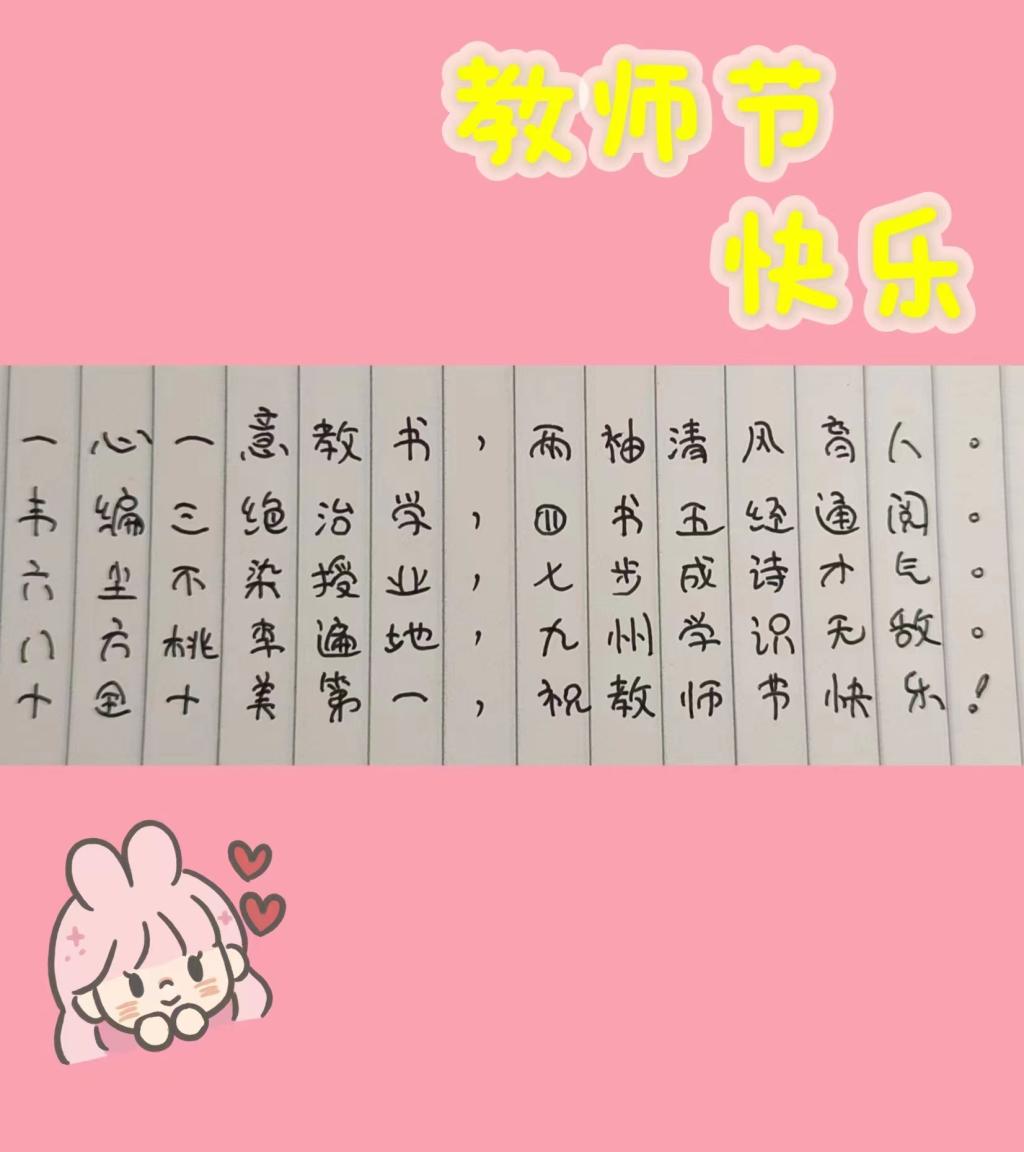 教师节
快乐
一心一意教书，两袖清风育人。
韦编三绝治学，四书五经通阅。
六尘不染授业，七步成诗才气。
八方桃李遍地，九州学识无敌。
十全十美第一，祝教师节快乐！